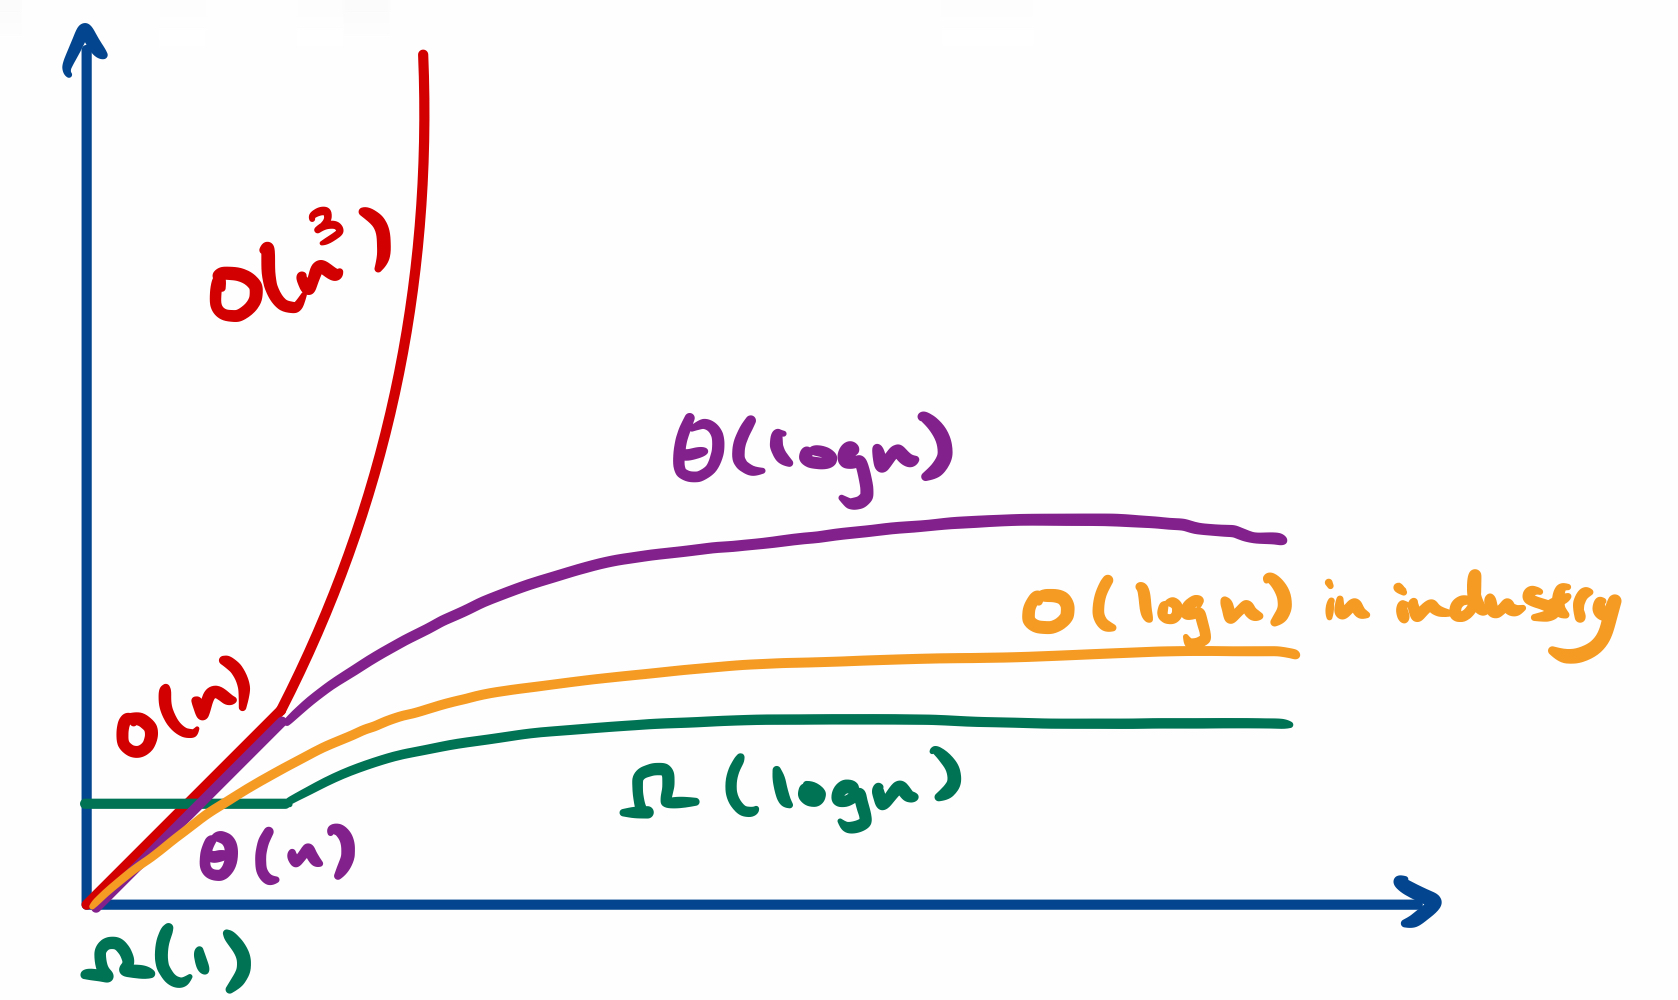 O(n³)
θ(logn)
O(logn) in industry
O(n)
Ω(logn)
θ(n)
Ω(1)